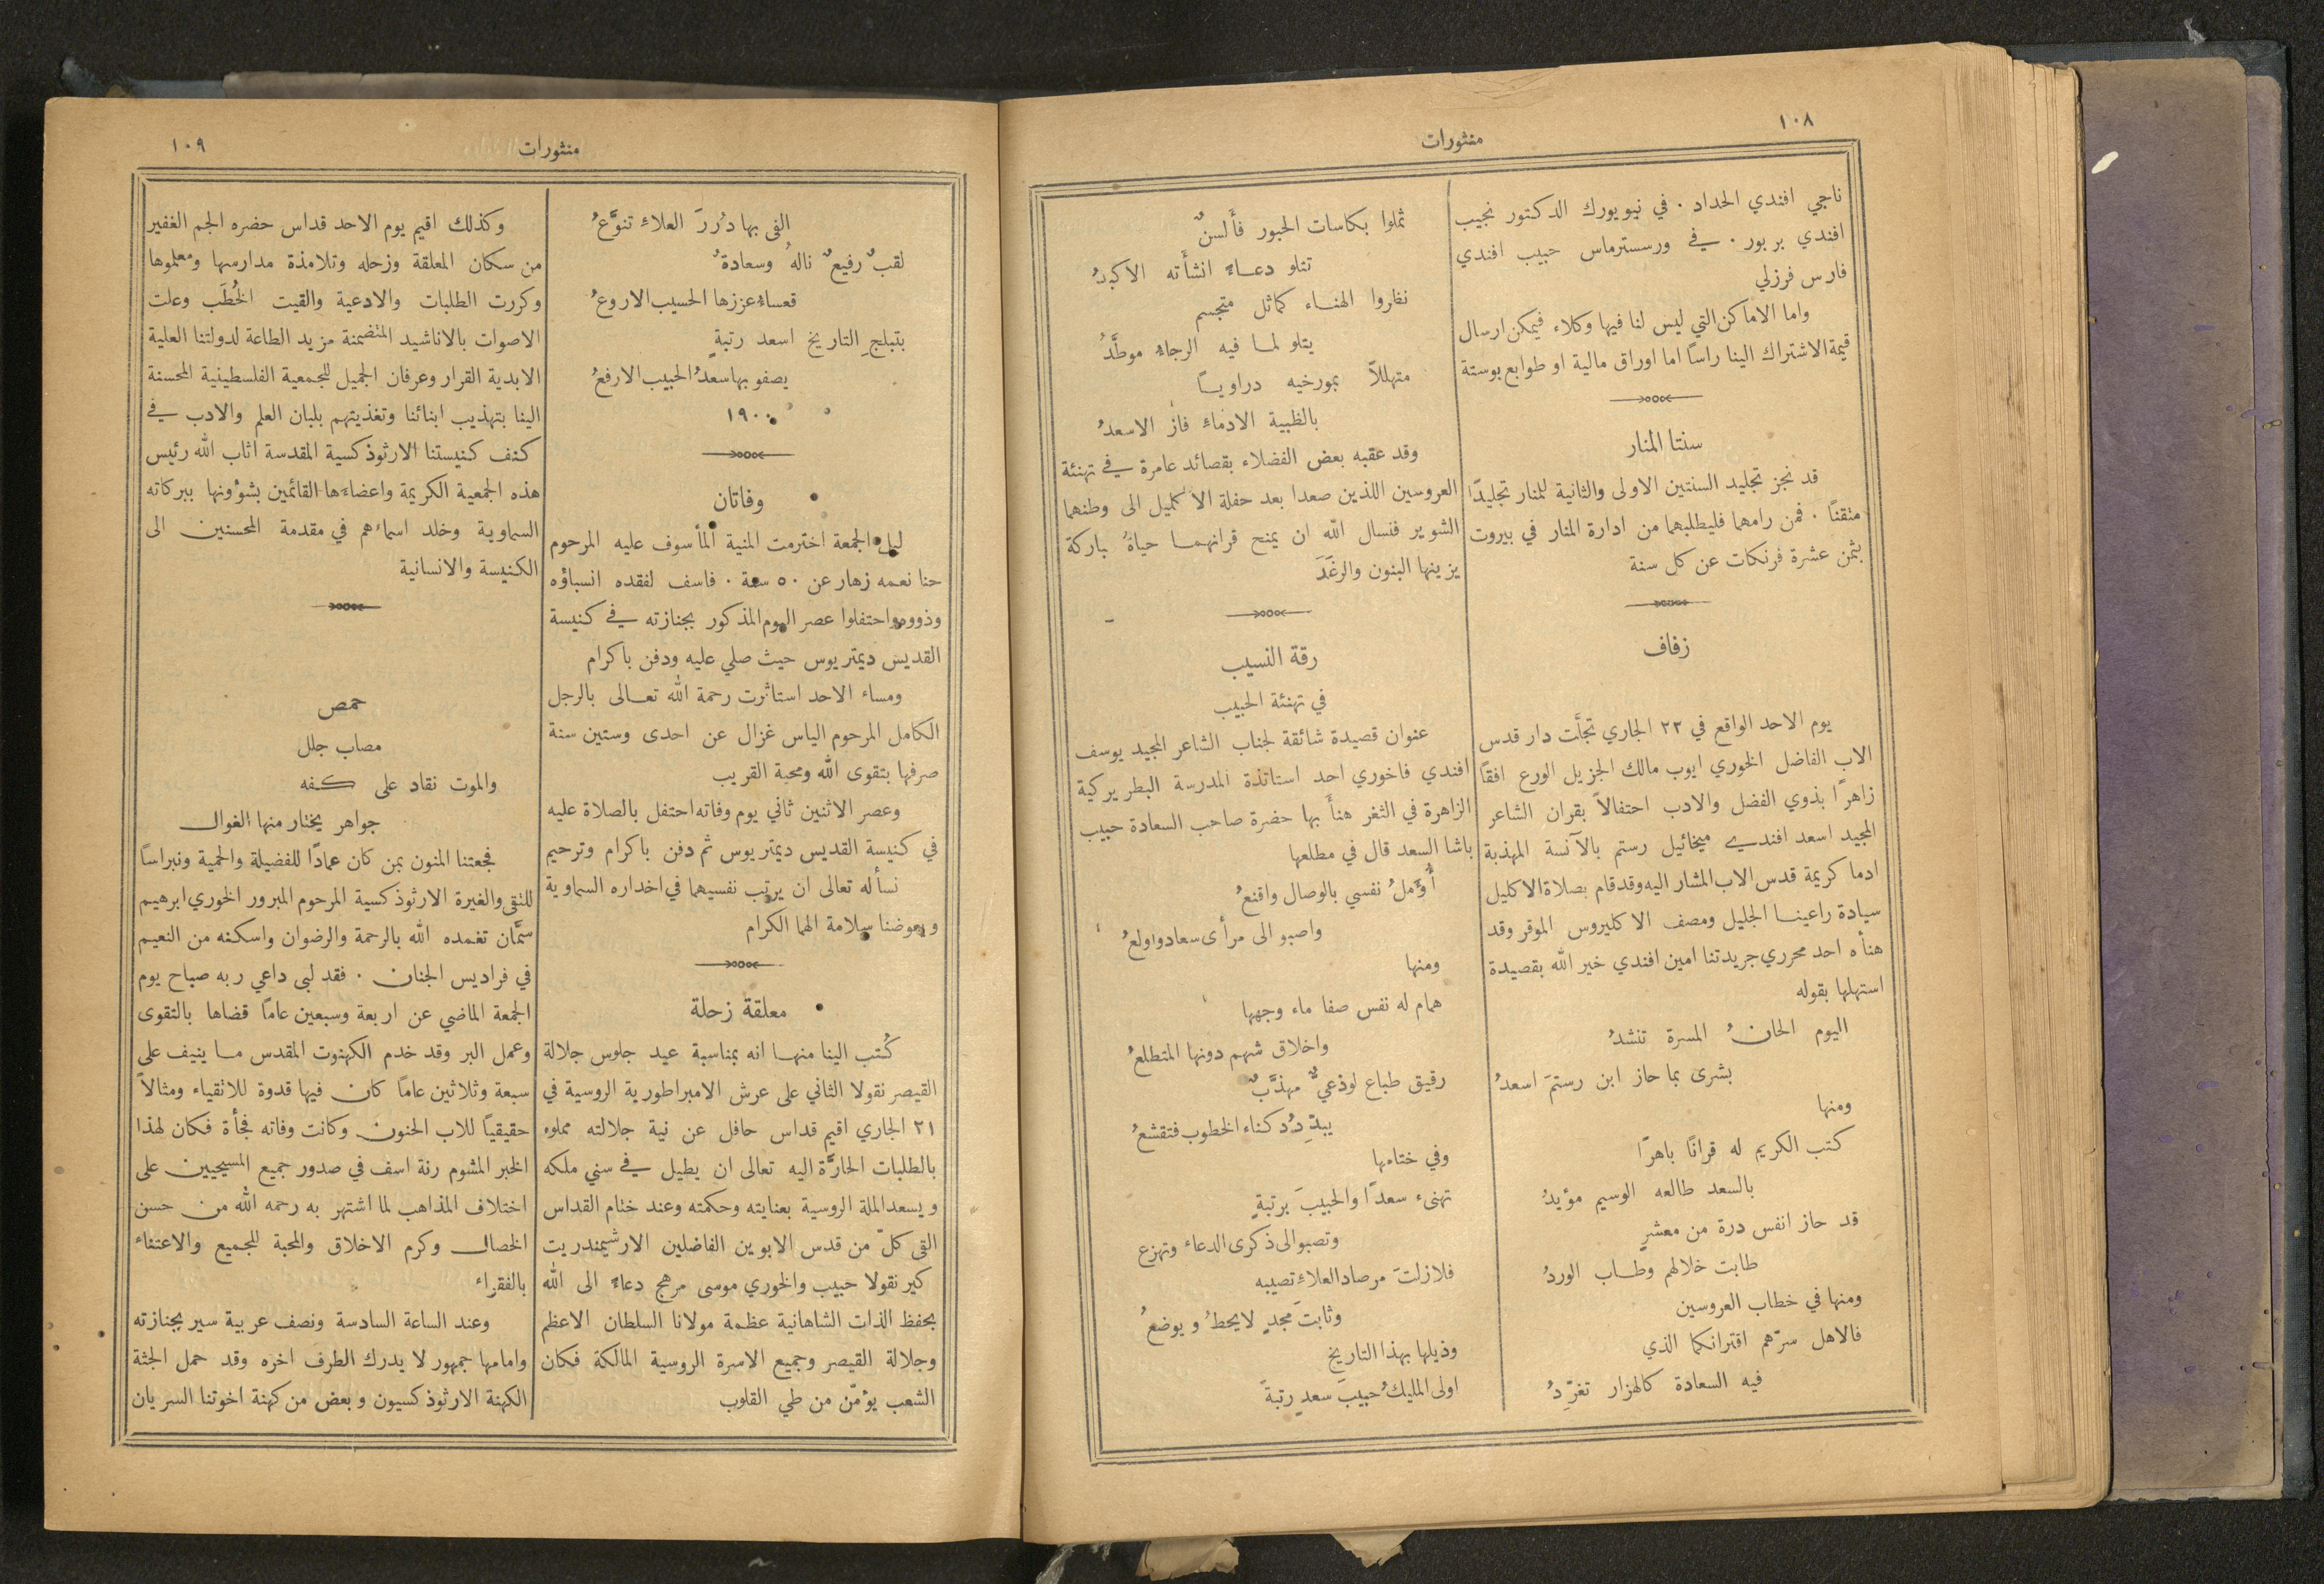 ١٠٨
منثورات
ناجي افندي الحداد . في نيويورك الدكتور نجيب
افندي بربور . في ورسسترماس حبيب افندي
فارس فرزلي
واما الاماكن التي ليس لنا فيها وكلاء فيمكن ارسال
قيمة الاشتراك الينا راساً اما اوراق مالية او طوابع بوستة
سنتا المنار
قد نجز تجليد السنتين الاولى والثانية للمنار تجليداً
متقناً . فمن رامهما فليطلبهما من ادارة المنار في بيروت
بثمن عشرة فرنكات عن كل سنة
زفاف
يوم الاحد الواقع في ٢٣ الجاري تجلَّت دار قدس
الاب الفاضل الخوري ايوب مالك الجزيل الورع افقاً
زاهراً بذوي الفضل والادب احتفالاً بقران الشاعر
المجيد اسعد افندي ميخائيل رستم بالآنسة المهذبة
ادما كريمة قدس الاب المشار اليه وقد قام بصلاة الاكليل
سيادة راعينا الجليل ومصف الاكليروس الموقر وقد
هنأه احد محرري جريدتنا امين افندي خير الله بقصيدة
استهلها بقوله
اليوم الحانُ المسرة تنشدُ
بشرى بما حاز ابن رستمَ اسعدُ
ومنها
كتب الكريم له قراناً باهراً
بالسعد طالعه الوسيم مؤيدُ
قد حاز انفس درة من معشرٍ
طابت خلالهم وطاب الوردُ
ومنها في خطاب العروسين
فالاهل سرّهم اقترانكما الذي
فيه السعادة كالهزار تغرِّدُ
ثملوا بكاسات الحبور فأَلسنٌ
تتلو دعاءً انشأَته الاكبدُ
نظروا الهناء كماثل متجسم
يتلو لما فيه الرجاءُ موطَّدُ
متهللاً بمورخيه دراوياً
بالظبية الادماء فاز الاسعدُ
وقد عقبه بعض الفضلاء بقصائد عامرة في تهنئة
العروسين اللذين صعدا بعد حفلة الاكليل الى وطنهما
الشوير فنسال الله ان يمنح قرانهما حياةً باركة
يزينها البنون والرغَدَ
رقة النسيب
في تهنئة الحبيب
عنوان قصيدة شائقة لجناب الشاعر المجيد يوسف
افندي فاخوري احد اساتذة المدرسة البطريركية
الزاهرة في الثغر هنأَ بها حضرة صاحب السعادة حبيب
باشا السعد قال في مطلعها
أُوَملُ نفسي بالوصال واقنعُ
واصبو الى مرأى سعاد واولعُ
ومنها
همام له نفس صفا ماء وجهها
واخلاق شهم دونها المتطلعُ
رقيق طباع لوذعيٌّ مهذَّبٌ
يبدِّدُ دكناء الخطوب فتقشعُ
وفي ختامها
تهنىء سعداً والحبيبَ برتبةٍ
وتصبو الى ذكرى الدعاء وتهزع
فلا زلتَ مرصاد العلاء تصيبه
وثابتَ مجدٍ لا يحطُ ويوضعُ
وذيلها بهذا التاريخ
اولى المليكُ حبيبَ سعدٍ رتبةً
منثورات
١٠٩
الفى بها دُررَ العلاءِ تنوَّعُ
لقبٌ رفيعٌ نالهُ وسعادةٌ
قعساءُ عززها الحسيب الاروعُ
بتبلجِ التاريخ اسعد رتبةٍ
يصفو بها سعدُ الحبيب الارفعُ
١٩٠٠
وفاتان
ليل الجمعة اخترمت المنية المأسوف عليه المرحوم
حنا نعمه زهار عن ٥٠ سنة . فاسف لفقده انسباؤه
وذووه واحتفلوا عصر اليوم المذكور بجنازته في كنيسة
القديس ديمتريوس حيث صلي عليه ودفن باكرام
ومساء الاحد استاثرت رحمة الله تعالى بالرجل
الكامل المرحوم الياس غزال عن احدى وستين سنة
صرفها بتقوى الله ومحبة القريب
وعصر الاثنين ثاني يوم وفاته احتفل بالصلاة عليه
في كنيسة القديس ديمتريوس ثم دفن باكرام وترحيم
نسأله تعالى ان يرتب نفسيهما في اخداره السماوية
ويعوضنا سلامة الهما الكرام
معلقة زحلة
كُتب الينا منها انه بمناسبة عيد جلوس جلالة
القيصر نقولا الثاني على عرش الامبراطورية الروسية في
٢١ الجاري اقيم قداس حافل عن نية جلالته مملوء
بالطلبات الحارَّة اليه تعالى ان يطيل في سني ملكه
ويسعد الملة الروسية بعنايته وحكمته وعند ختام القداس
القى كلّ من قدس الابوين الفاضلين الارشيمندريت
كير نقولا حبيب والخوري موسى مرهج دعاءً الى الله
بحفظ الذات الشاهانية عظمة مولانا السلطان الاعظم
وجلالة القيصر وجميع الاسرة الروسية المالكة فكان
الشعب يؤمّن من طي القلوب
وكذلك اقيم يوم الاحد قداس حضره الجم الغفير
من سكان المعلقة وزحله وتلامذة مدارسها ومعلموها
وكررت الطلبات والادعية والقيت الخُطَب وعلت
الاصوات بالاناشيد المتضمنة مزيد الطاعة لدولتنا العلية
الابدية القرار وعرفان الجميل للجمعية الفلسطينية المحسنة
الينا بتهذيب ابنائنا وتغذيتهم بلبان العلم والادب في
كنف كنيستنا الارثوذكسية المقدسة اثاب الله رئيس
هذه الجمعية الكريمة واعضاءها القائمين بشؤونها ببركاته
السماوية وخلد اسماءهم في مقدمة المحسنين الى
الكنيسة والانسانية
حمص
مصاب جلل
والموت نقاد على كفه
جواهر يختار منها الغوال
فجعتنا المنون بمن كان عماداً للفضيلة والحمية ونبراساً
للتقى والغيرة الارثوذكسية المرحوم المبرور الخوري ابرهيم
سمَّان تغمده الله بالرحمة والرضوان واسكنه من النعيم
في فراديس الجنان . فقد لبى داعي ربه صباح يوم
الجمعة الماضي عن اربعة وسبعين عاماً قضاها بالتقوى
وعمل البر وقد خدم الكهنوت المقدس ما ينيف على
سبعة وثلاثين عاماً كان فيها قدوة للاتقياء ومثالاً
حقيقياً للاب الحنون وكانت وفاته فجأة فكان لهذا
الخبر المشوم رنة اسف في صدور جميع المسيحيين على
اختلاف المذاهب لما اشتهر به رحمه الله من حسن
الخصال وكرم الاخلاق والمحبة للجميع والاعتناء
بالفقراء
وعند الساعة السادسة ونصف عربية سير بجنازته
وامامها جمهور لا يدرك الطرف اخره وقد حمل الجثة
الكهنة الارثوذكسيون وبعض من كهنة اخوتنا السريان